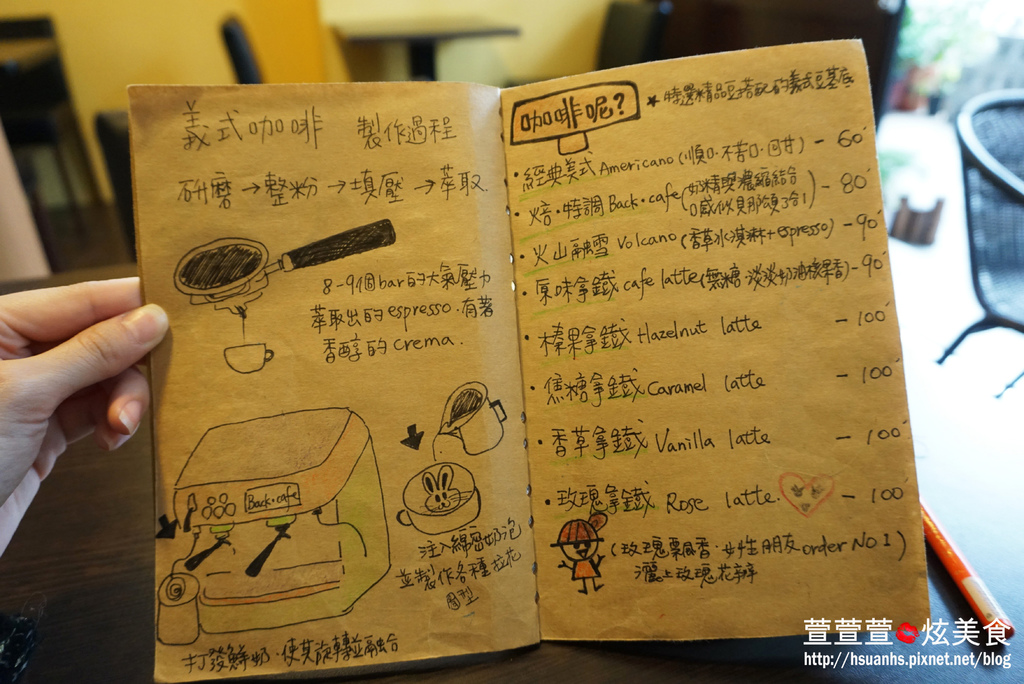 義式咖啡 製作過程
研磨→整粉→填壓→萃取.
8-9個bar的大氣壓力
萃取出的espresso.有著
香醇的crema.
Back·cafe
注入綿密奶泡
並製作各種拉花
圖型
打發鮮奶·使其旋轉並融合
咖啡呢?
★特選精品豆搭配的義式豆基底
·經典美式Americano(順口·不苦口·回甘) - 60
·焙·特調Back·cafe(奶精與濃縮結合 - 80
口感似貝那頌了哈!)
·火山融雪Volcano(香草冰淇淋+espresso) - 90
·原味拿鐵cafe latte(無糖·淡淡奶油榛果香) - 90
·榛果拿鐵Hazelnut latte - 100
·焦糖拿鐵Caramel latte - 100
·香草拿鐵Vanilla latte - 100
·玫瑰拿鐵Rose latte. - 100
(玫瑰飄香·女性朋友order NO 1)
灑上玫瑰花瓣
萱萱萱炫美食
http://hsuanhs.pixnet.net/blog